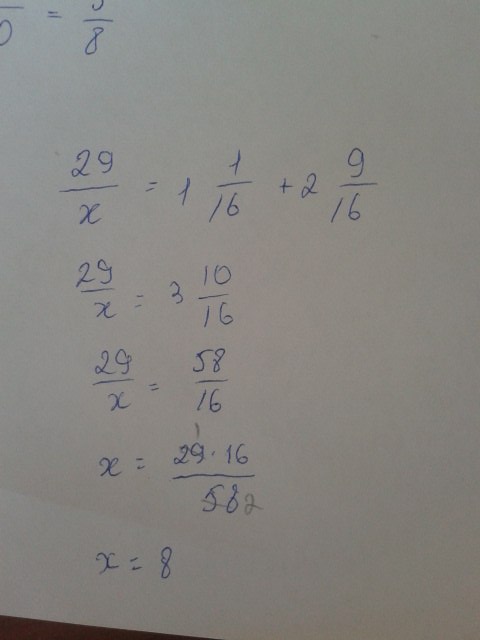 0 = 5/8
29/x = 1 1/16 + 2 9/16
29/x = 3 10/16
29/x = 58/16
x = 29·16/58 1 2
x = 8